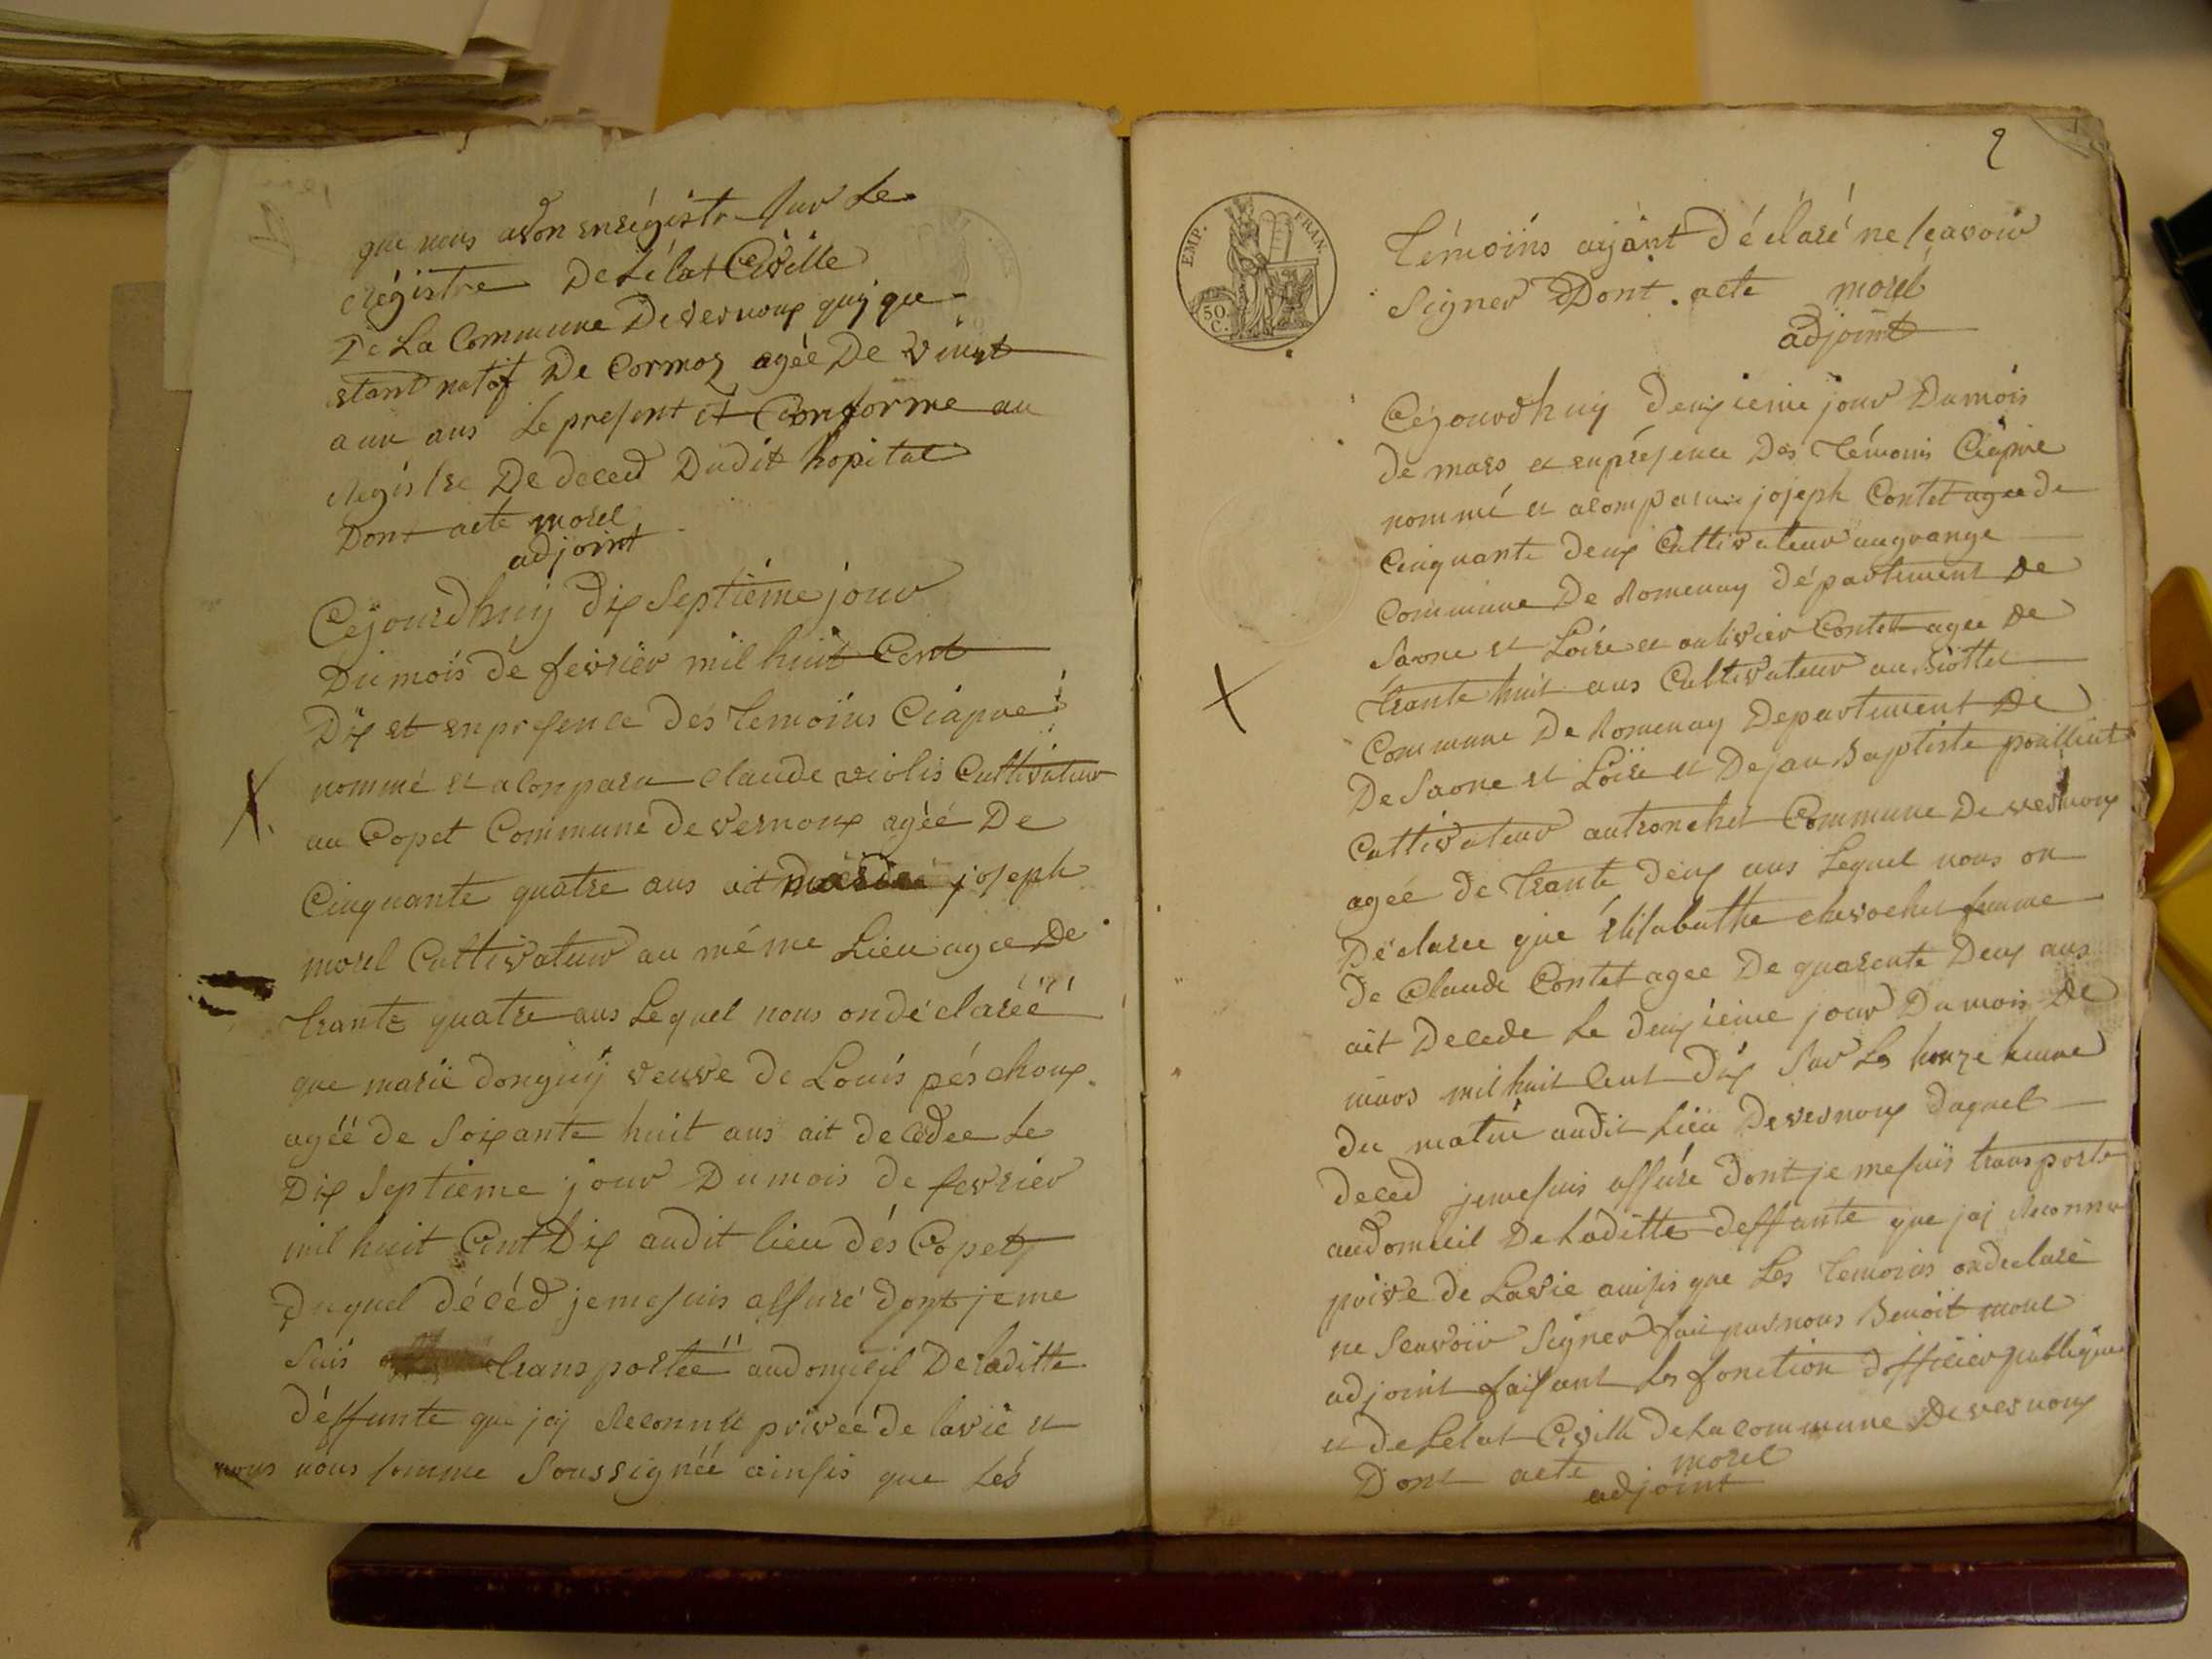 que nous avon enregistr sur Le
régistre De Létat Civille
De La Commune Devernoux quy que
etant natif De Cormoz agée De vint
a un ans Le present et Conforme au
régistre De deced Dudit hopital
Dont acte morel
adjoint
Céjourdhuy dix Septiéme jour
Dumois de fevrier mil huit Cent
Dix et enpresence dés temoins Ciaprés
nommé et a Conparu Claude violis Cultivateur
au Copet Commune de vernoux agéé De
Cinquante quatre ans joseph
morel Cultivateur au méme Lieu agee De
trante quatre ans Lequel nous on déclaréé
que marie donguy veuve de Louis péschoux
agéé de Soixante huit ans ait decédee Le
Dix Septieme jour Dumois de fevrier
mil huit Cent Dix audit lieu dés Copets
Duquel décéd jemesuis assuré dont jeme
Suis transportéé audomicil De laditte
déffunte que jaj Reconnu privée de lavie et
nous nous somme Soussignéé ainsis que Lés
2
EMP. FRAN.
50 C.
témoins aijant déclaré ne scavoir
Signer Dont acte morel
adjoint
Céjourdhuy deuxieme jour Dumois
de mars et enprésence Des témoins Ciapre
nommé et a Comparu joseph Contet agee de
Cinquante deux Cultivateur augrange
Commune De Romenay département De
Saone et Loire et oulivier Contet agee De
trante huit ans Cultivateur au Biottet
Commune De Romenay Departement De
De Saone et Loire et De jan Baptiste
Cultivateur autronchet Commune Devernoux
agée de trante deux ans Lequel nous on
Declaree que Elisabethe chevochet femme
de Claude Contet agee De quarente Deux ans
ait Decede Le deuxieme jour Dumois De
mars mil huit Cent dix Sur Les honze heure
du matin audit Lieu Devernoux duquel
deced jemesuis assuré Dont je mesuis transporte
audomicil De Laditte deffunte que jaj Reconnu
prive de Lavie ainsis que Les temoins ondeclaré
ne Scavoir Signer fait parnous Benoit morel
adjoint faisant Les fonction d'officier publique
et deLetat Civille deLa commune Devernoux
Dont acte morel
adjoint